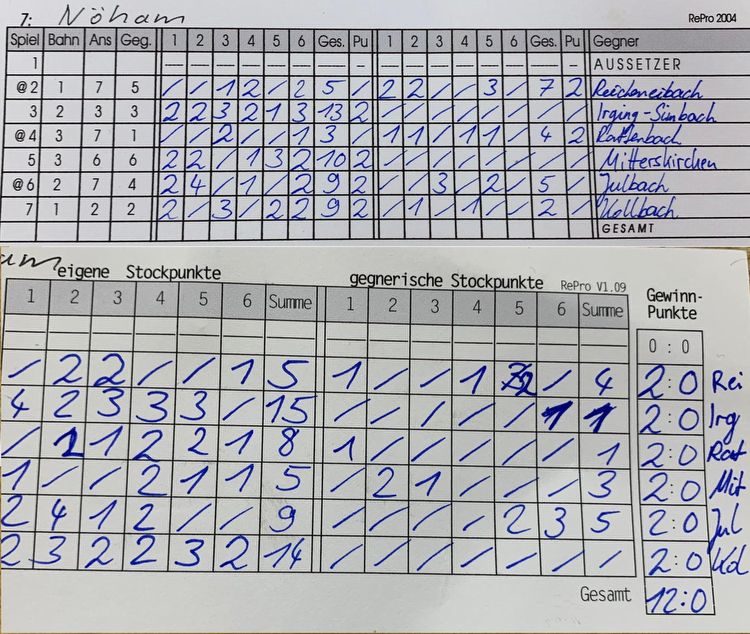 7: Nöham RePro 2004
Spiel Bahn Ans Geg. 1 2 3 4 5 6 Ges. Pu 1 2 3 4 5 6 Ges. Pu Gegner
1 — — — — — — — — — — — — — — — — AUSSETZER
@2 1 7 5 / / 1 2 / 2 5 / 2 2 / / 3 / 7 2 Reicheneibach
3 2 3 3 2 2 3 2 1 3 13 2 / / / / / / / / Irging-Simbach
@4 3 7 1 / / 2 / / 1 3 / 1 1 / 1 1 / 4 2 Rattenbach
5 3 6 6 2 2 / 1 3 2 10 2 / / / / / / / / Mitterskirchen
@6 2 7 4 2 4 / 1 / 2 9 2 / / 3 / 2 / 5 / Julbach
7 1 2 2 2 / 3 / 2 2 9 2 / 1 / 1 / / 2 / Kollbach
GESAMT
am eigene Stockpunkte gegnerische Stockpunkte RePro V1.09 Gewinn-
Punkte
1 2 3 4 5 6 Summe 1 2 3 4 5 6 Summe
— — — — — — — — — — — — — — 0 : 0
/ 2 2 / / 1 5 1 / / 1 2 / 4 2:0 Rei
4 2 3 3 3 / 15 / / / / / 1 1 2:0 Irg
/ 2 1 2 2 1 8 1 / / / / / 1 2:0 Rat
1 / / 2 1 1 5 / 2 1 / / / 3 2:0 Mit
2 4 1 2 / / 9 / / / / 2 3 5 2:0 Jul
2 3 2 2 3 2 14 / / / / / / / 2:0 Kol
Gesamt 12:0